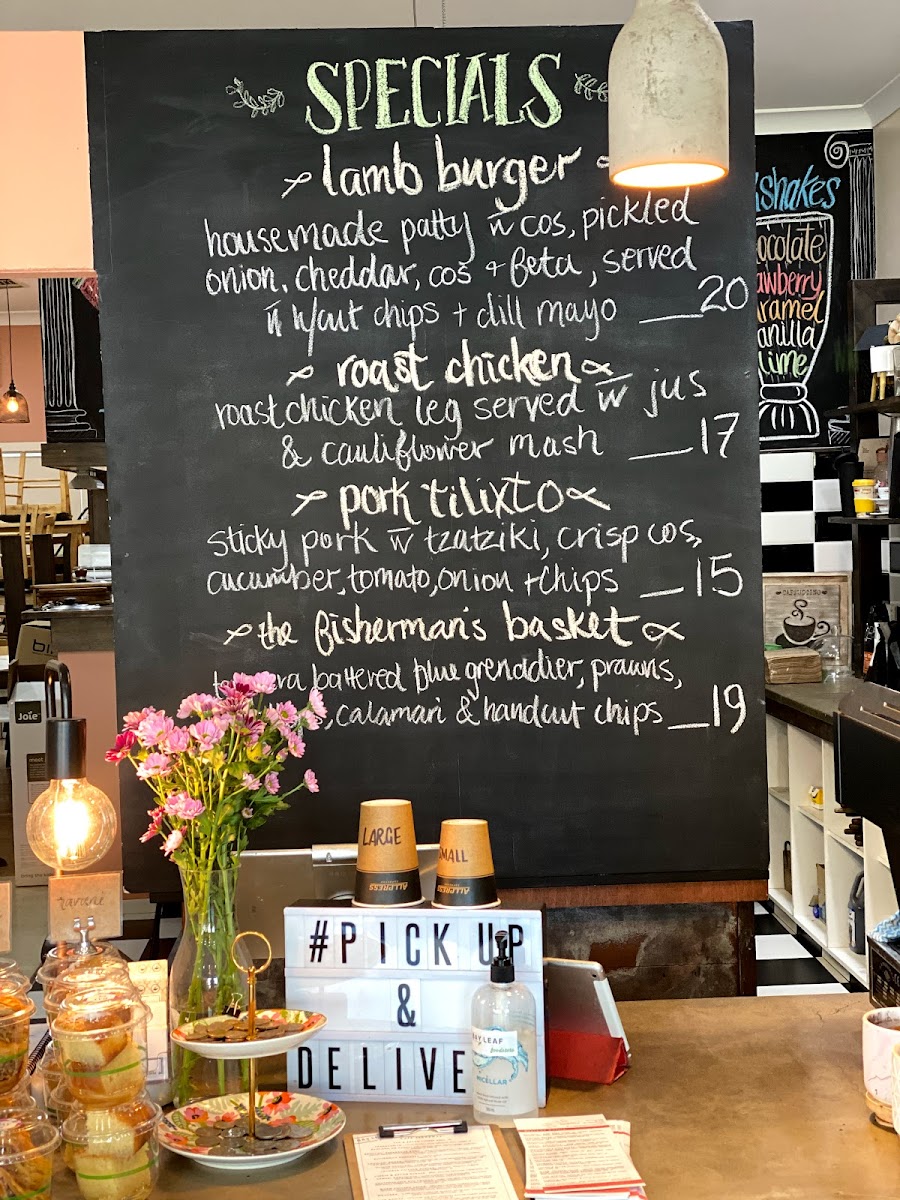 SPECIALS
lamb burger
housemade patty w̄ cos, pickled
onion, cheddar, cos + feta, served
w̄ h/cut chips + dill mayo __20
roast chicken
roast chicken leg served w̄ jus
& cauliflower mash __17
pork tilixto
sticky pork w̄ tzatziki, crisp cos,
cucumber, tomato, onion + chips __15
the fisherman's basket
battered blue grenadier, prawns,
, calamari & handcut chips __19
LARGE
SMALL
ALLPRESS
ALLPRESS
#PICK UP
&
DELIVE
MICELLAR
Joie
CAPPUCCINO
vanilla
lime